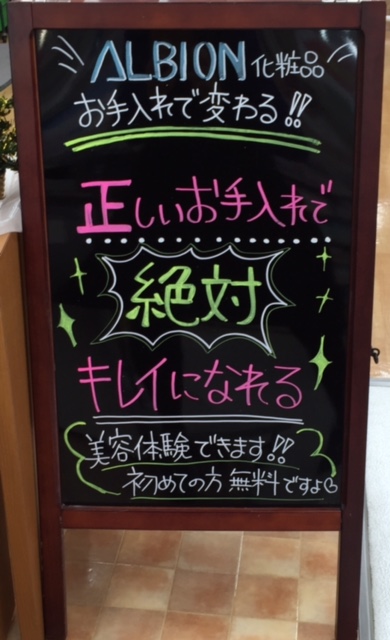 ALBION 化粧品
お手入れで変わる!!
正しいお手入れで
絶対
キレイになれる
美容体験できます!!
初めての方 無料ですよ